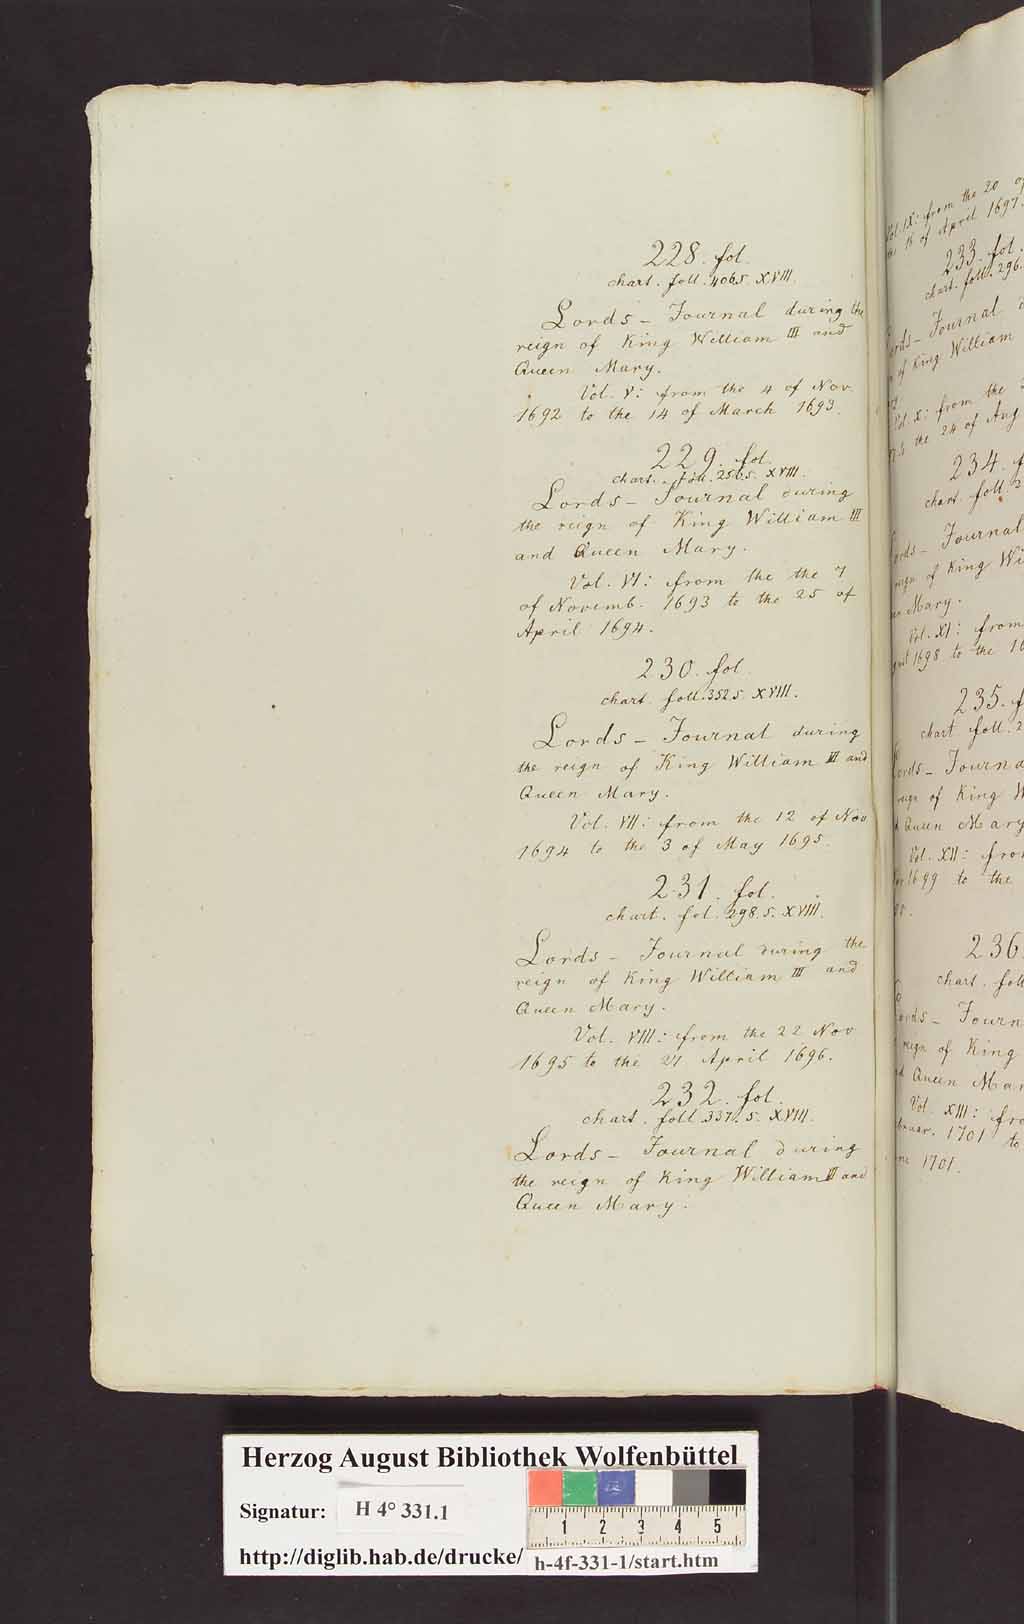 228. fol.
chart. foll. 406. s. XVIII.
Lords - Journal during the
reign of King William III and
Queen Mary.
Vol. V: from the 4 of Nov.
1692 to the 14 of March 1693.
229. fol.
chart. foll. 256. s. XVIII.
Lords - Journal during
the reign of King William III
and Queen Mary.
Vol. VI: from the the 7
of Novemb. 1693 to the 25 of
April 1694.
230. fol.
chart. foll. 352 s. XVIII.
Lords - Journal during
the reign of King William III and
Queen Mary.
Vol. VII: from the 12 of Nov
1694 to the 3 of May 1695.
231. fol.
chart. fol. 298. s. XVIII.
Lords - Journal during the
reign of King William III and
Queen Mary.
Vol. VIII: from the 22 Nov
1695 to the 27 April 1696.
232. fol.
chart. foll. 337. s. XVIII.
Lords - Journal during
the reign of King William III and
Queen Mary.
Vol. IX: from the 20
of April 1697.
233. fol.
chart. foll. 296.
Journal
of King William
Vol. X: from the
the 24 of Aug
234.
chart. foll.
Journal
of King
Mary.
Vol. XI: from
1698 to the
235.
chart foll.
of King
Queen Mary
Vol. XII:
to the
236.
chart.
of King
Queen
Vol. XIII:
1701 to
1701.
Herzog August Bibliothek Wolfenbüttel
Signatur: H 4° 331.1
1 2 3 4 5
http://diglib.hab.de/drucke/ h-4f-331-1/start.htm